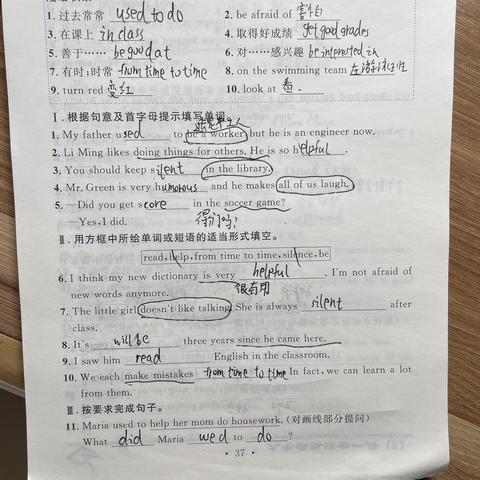 1. 过去常常 used to do 2. be afraid of 害怕
3. 在课上 in class 4. 取得好成绩 get good grades
5. 善于…… be good at 6. 对……感兴趣 be interested in
7. 有时;时常 from time to time 8. on the swimming team 在游泳队
9. turn red 变红 10. look at 看.
Ⅰ. 根据句意及首字母提示填写单词。
1. My father used to be a worker, but he is an engineer now.
2. Li Ming likes doing things for others. He is so helpful.
3. You should keep silent in the library.
4. Mr. Green is very humonous and he makes all of us laugh.
5. —Did you get score in the soccer game?
—Yes, I did. 得分吗?
Ⅱ. 用方框中所给单词或短语的适当形式填空。
read, help, from time to time, silence, be
6. I think my new dictionary is very helpful. I'm not afraid of
new words anymore. 很有用
7. The little girl doesn't like talking. She is always silent after
class.
8. It's will be three years since he came here.
9. I saw him read English in the classroom.
10. We each make mistakes from time to time. In fact, we can learn a lot
from them.
Ⅲ. 按要求完成句子。
11. Maria used to help her mom do housework. (对画线部分提问)
What did Maria wed to do?
· 37 ·